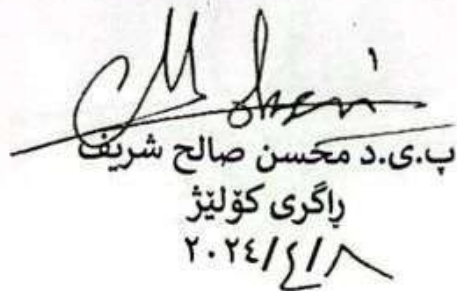 Mohsin
پ.ی.د محسن صالح شریف
ڕاگری کۆلێژ
٢٠٢٤/٤/٨